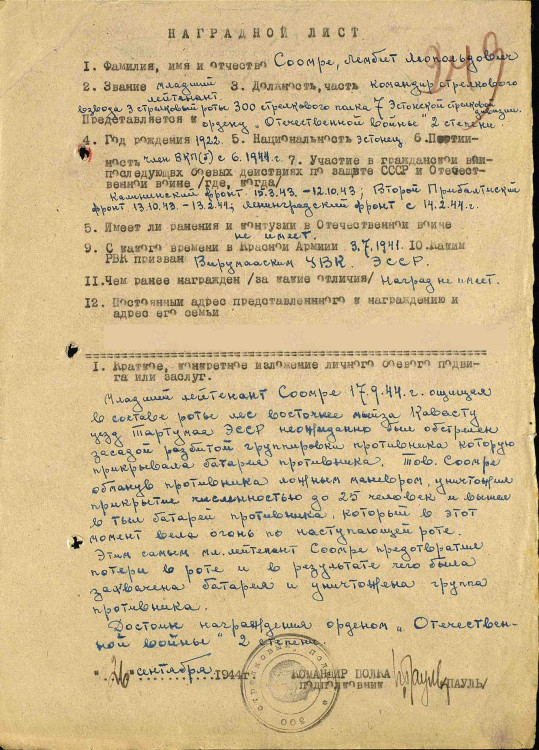 НАГРАДНОЙ ЛИСТ
1. Фамилия, имя и отчество Соомре, Лембит Леопольдович
2. Звание младший 3. Должность, часть командир стрелкового
лейтенант.
взвода 3 стрелковый роты 300 стрелкового полка 7 Эстонской стрелковой дивизии.
Представляется к ордену „Отечественной войны" 2 степени.
4. Год рождения 1922. 5. Национальность эстонец 6. Партий-
ность член ВКП(б) с 6.1944 г. 7. Участие в гражданской вой-
последующих боевых действиях по защите СССР и Отечест-
венной войне /где, когда/
Калининский фронт 15.3.43.-12.10.43; Второй Прибалтиский
фронт 13.10.43.-13.2.44; Ленинградский фронт с 14.2.44 г.
5. Имеет ли ранения и контузии в Отечественной войне
не имеет.
9. С какого времени в Красной Армиии 3.7.1941. 10. Каким
РВК призван Вирумааским УВК. ЭССР.
11. Чем ранее награжден /за какие отличия/ Наград не имеет.
12. Постоянный адрес представленного к награждению и
адрес его семьи
1. Краткое, конкретное изложение личного боевого подви-
га или заслуг.
Младший лейтенант Соомре 17.9.44. г. ощищая
в составе роты лес восточнее мыйза Кавасту
уезд Тартумае ЭССР неожиданно был обстрелен
засадой разбитой группировки противника которую
прикрывала батарея противника. Тов. Соомре
обманув противника ложным маневром, уничтожил
прикрытие численностью до 25 человек и вышел
в тыл батарей противника, который в этот
момент вела огонь по наступающей роте.
Этим самым мл. лейтенант Соомре предотвратил
потери в роте и в результате чего была
захвачена батарея и уничтожена группа
противника.
Достоин награждения орденом „Отечествен-
ной войны" 2 степени.
"26" сентября 1944г. КОМАНДИР ПОЛКА
ПОДПОЛКОВНИК /ПАУЛЬ/